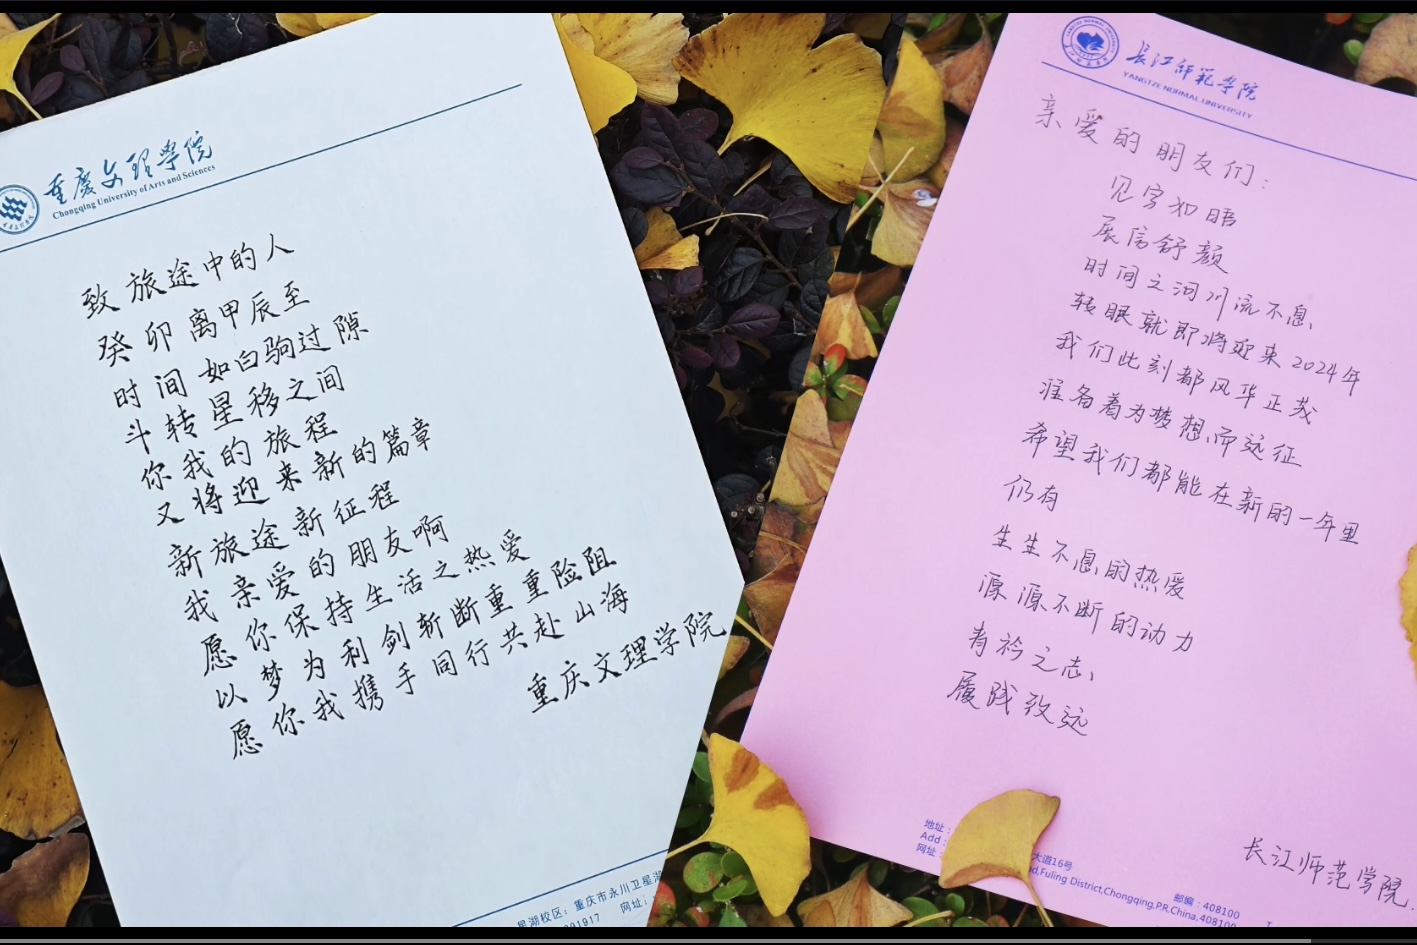 重庆文理学院
Chongqing University of Arts and Sciences
致旅途中的人
癸卯离甲辰至
时间如白驹过隙
斗转星移之间
你我的旅程
又将迎来新的篇章
新旅途新征程
我亲爱的朋友啊
愿你保持生活之热爱
以梦为利剑斩断重重险阻
愿你我携手同行共赴山海
重庆文理学院
星湖校区：重庆市永川卫星湖
网址：
長江师範学院
YANGTZE NORMAL UNIVERSITY
亲爱的朋友们：
见字如晤
展信舒颜
时间之河川流不息、
转眼就即将迎来2024年
我们此刻都风华正茂
准备着为梦想而远征
希望我们都能在新的一年里
仍有
生生不息的热爱
源源不断的动力
青衿之志、
履践致远
长江师范学院.
地址：
大道16号
Add：
d,Fuling District,Chongqing,P.R.China,408100
网址：
邮编：408100